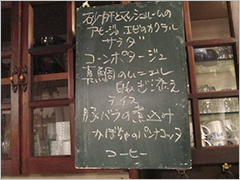 砂肝とマッシュルームの
アヒージョ エビのカクテル
サラダ
コーンポタージュ
真鯛のムニエル
ねぎ添え
ライス
豚バラの煮込み
かぼちゃのパンナコッタ
コーヒー